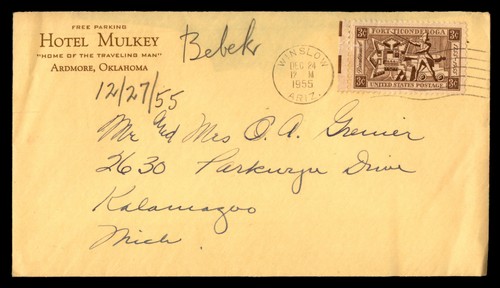 FREE PARKING
HOTEL MULKEY
"HOME OF THE TRAVELING MAN"
ARDMORE, OKLAHOMA
Bebek
WINSLOW
DEC 24
12 M
1955
ARIZ.
3¢ FORT TICONDEROGA 3¢
3¢ UNITED STATES POSTAGE 3¢
12/27/55
Mr and Mrs O. A. Grenier
2630 Parkwyn Drive
Kalamazoo
Mich